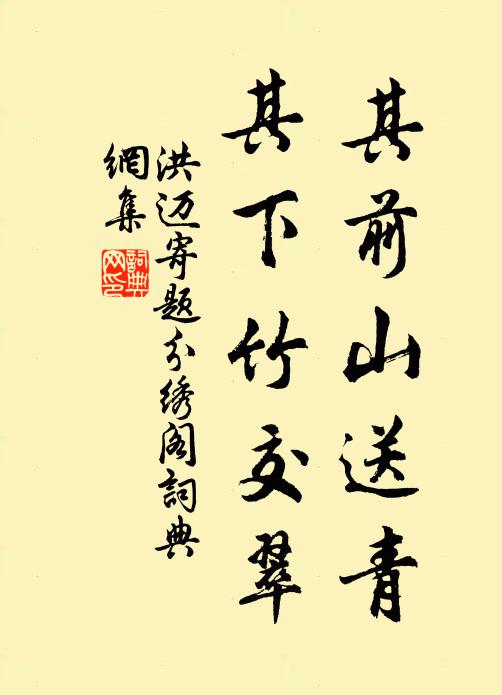 其前山送青
其下竹交翠
洪迈寄题分绣阁詞典
網集
詞典
网印